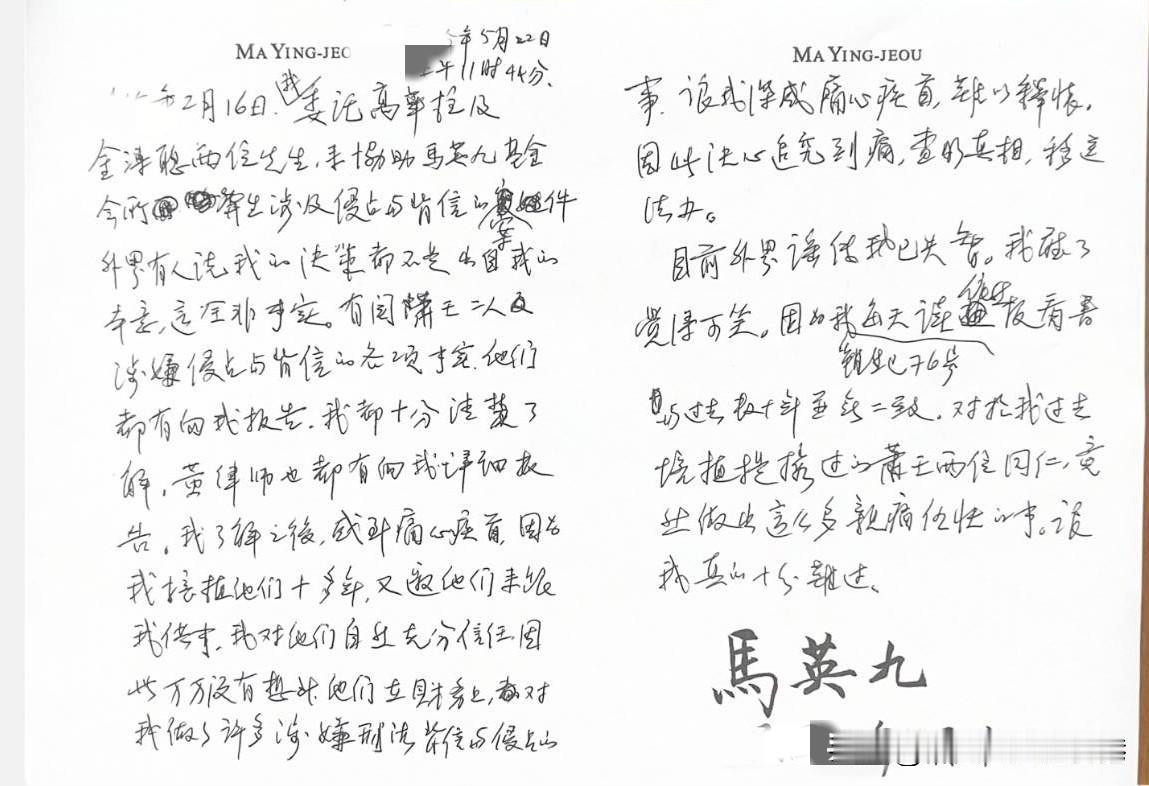 MA YING-JEO
年5月22日
午11时44分.
年2月16日.我委託高華柱及
金溥聪两位先生,来协助馬英九基金
会所 發生涉及侵占与背信的案件
外界有人说,我的决策都不是出自我的
本意,这全非事实。有関蕭王二人及
涉嫌侵占与背信的各项事实.他们
都有向我报告.我都十分清楚了
解,黄律师也都有向我详细报
告。我了解之後,感到痛心疾首,因为
我培植他们十多年,又邀他们来跟
我供事.我对他们自然充分信任.因
此万万没有想到.他们在財务上,都对
我做了许多涉嫌刑法背信与侵占的
MA YING-JEOU
事.让我深感痛心疾首,難以释怀.
因此决心追究到底,查明真相,移送
法办。
目前外界谣传我已失智。我聽了
覺得可笑。因为我每天读 报看書
已76歲
与过去数十年並無二致.对於我过去
培植提携过的蕭王两位同仁,竟
然做出这么多親痛仇快的事。让
我真的十分難过。
馬英九